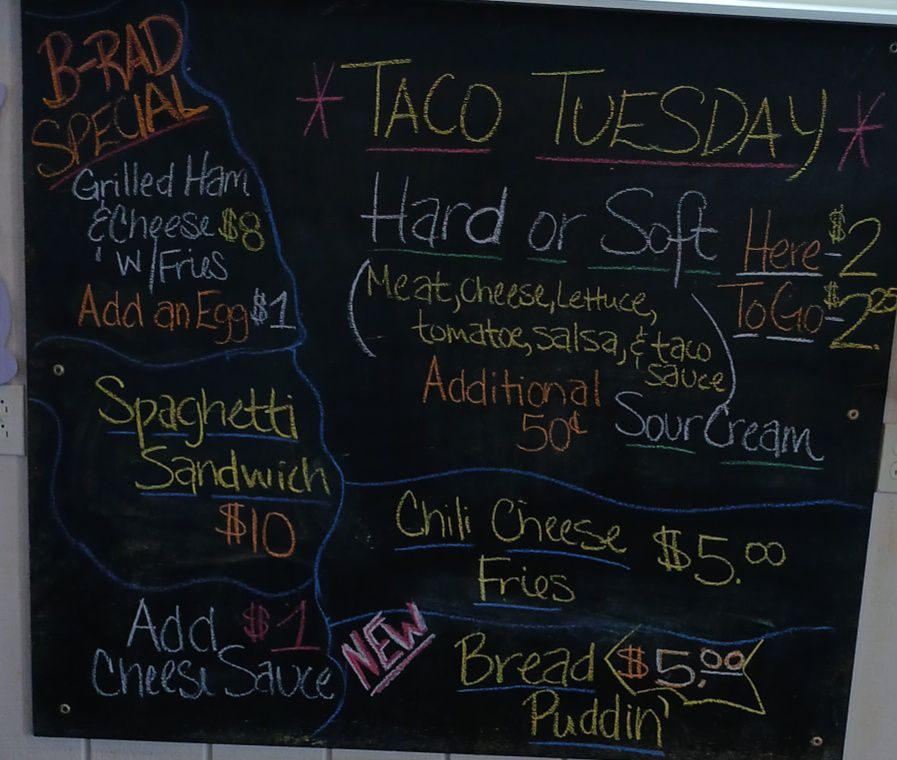 B-RAD
SPECIAL
Grilled Ham
& Cheese $8
w/Fries
Add an Egg $1
Spaghetti
Sandwich
$10
Add $1
Cheese Sauce
* TACO TUESDAY *
Hard or Soft
Here - $2
To Go - $2.25
(Meat, cheese, lettuce,
tomatoe, salsa, & taco
sauce)
Additional
50¢
Sour Cream
Chili Cheese
Fries
$5.00
NEW
Bread
Puddin'
$5.00